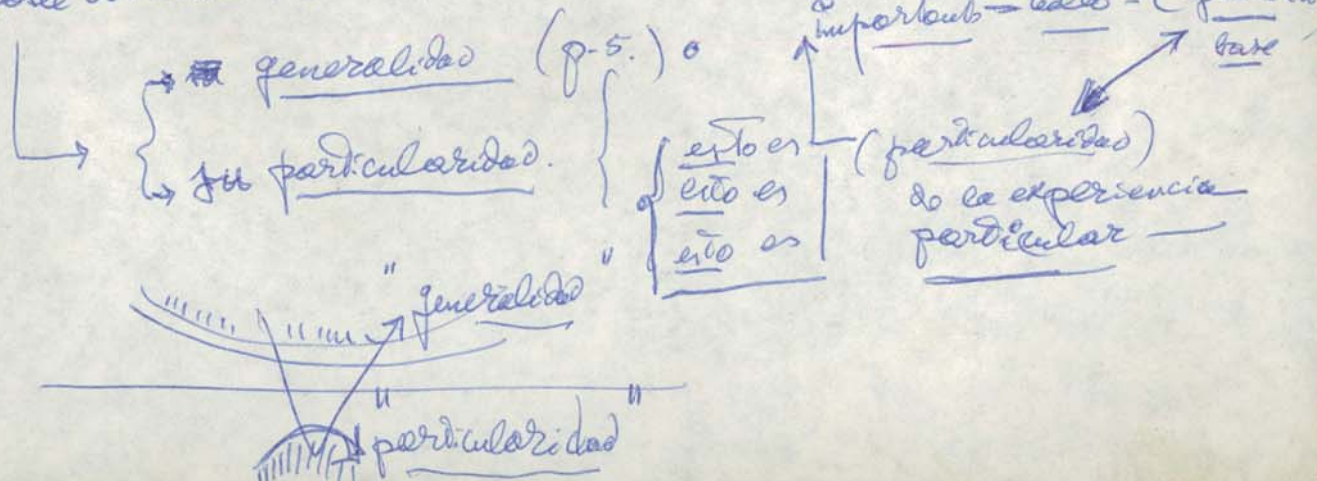 Importante
base
generalidad (p-5.)
particularidad.
esto es
esto es
esto es
(particularidad)
de la experiencia
particular
"generalidad"
"particularidad"